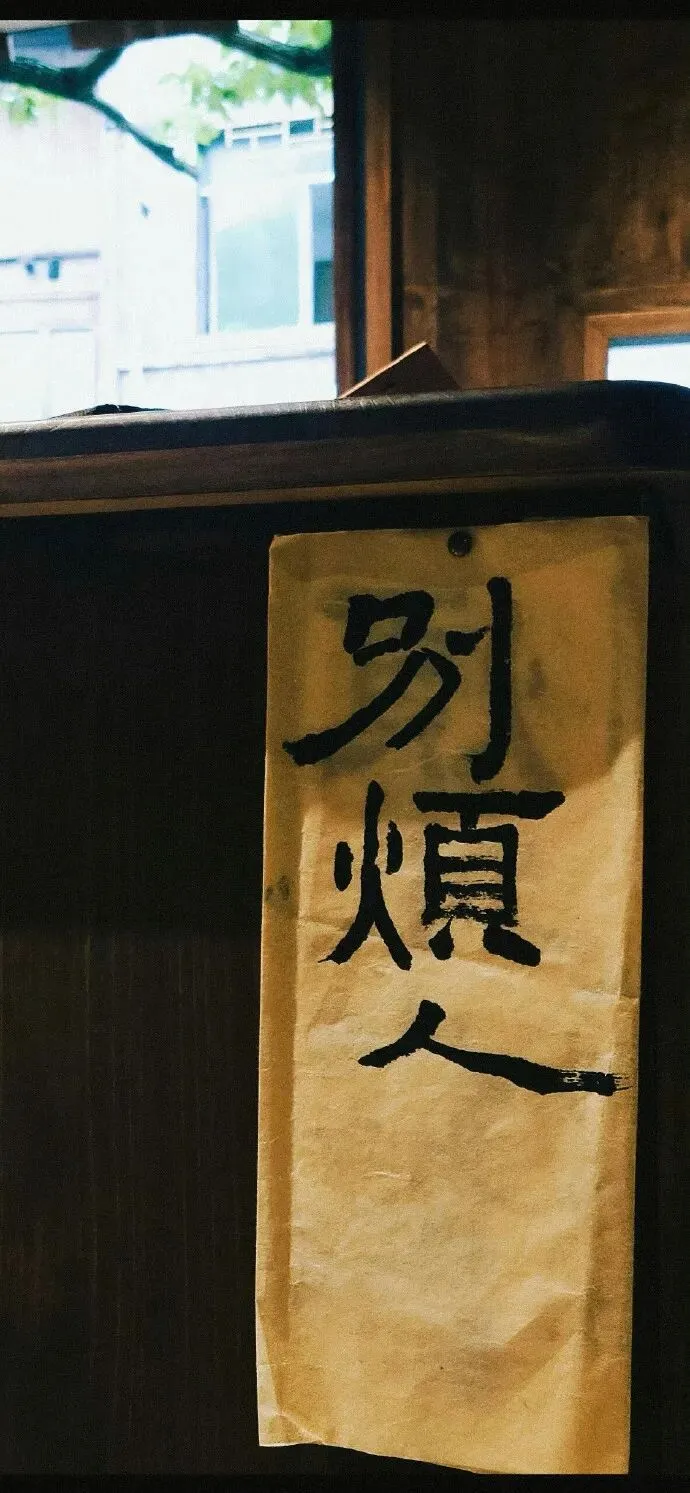 別煩人